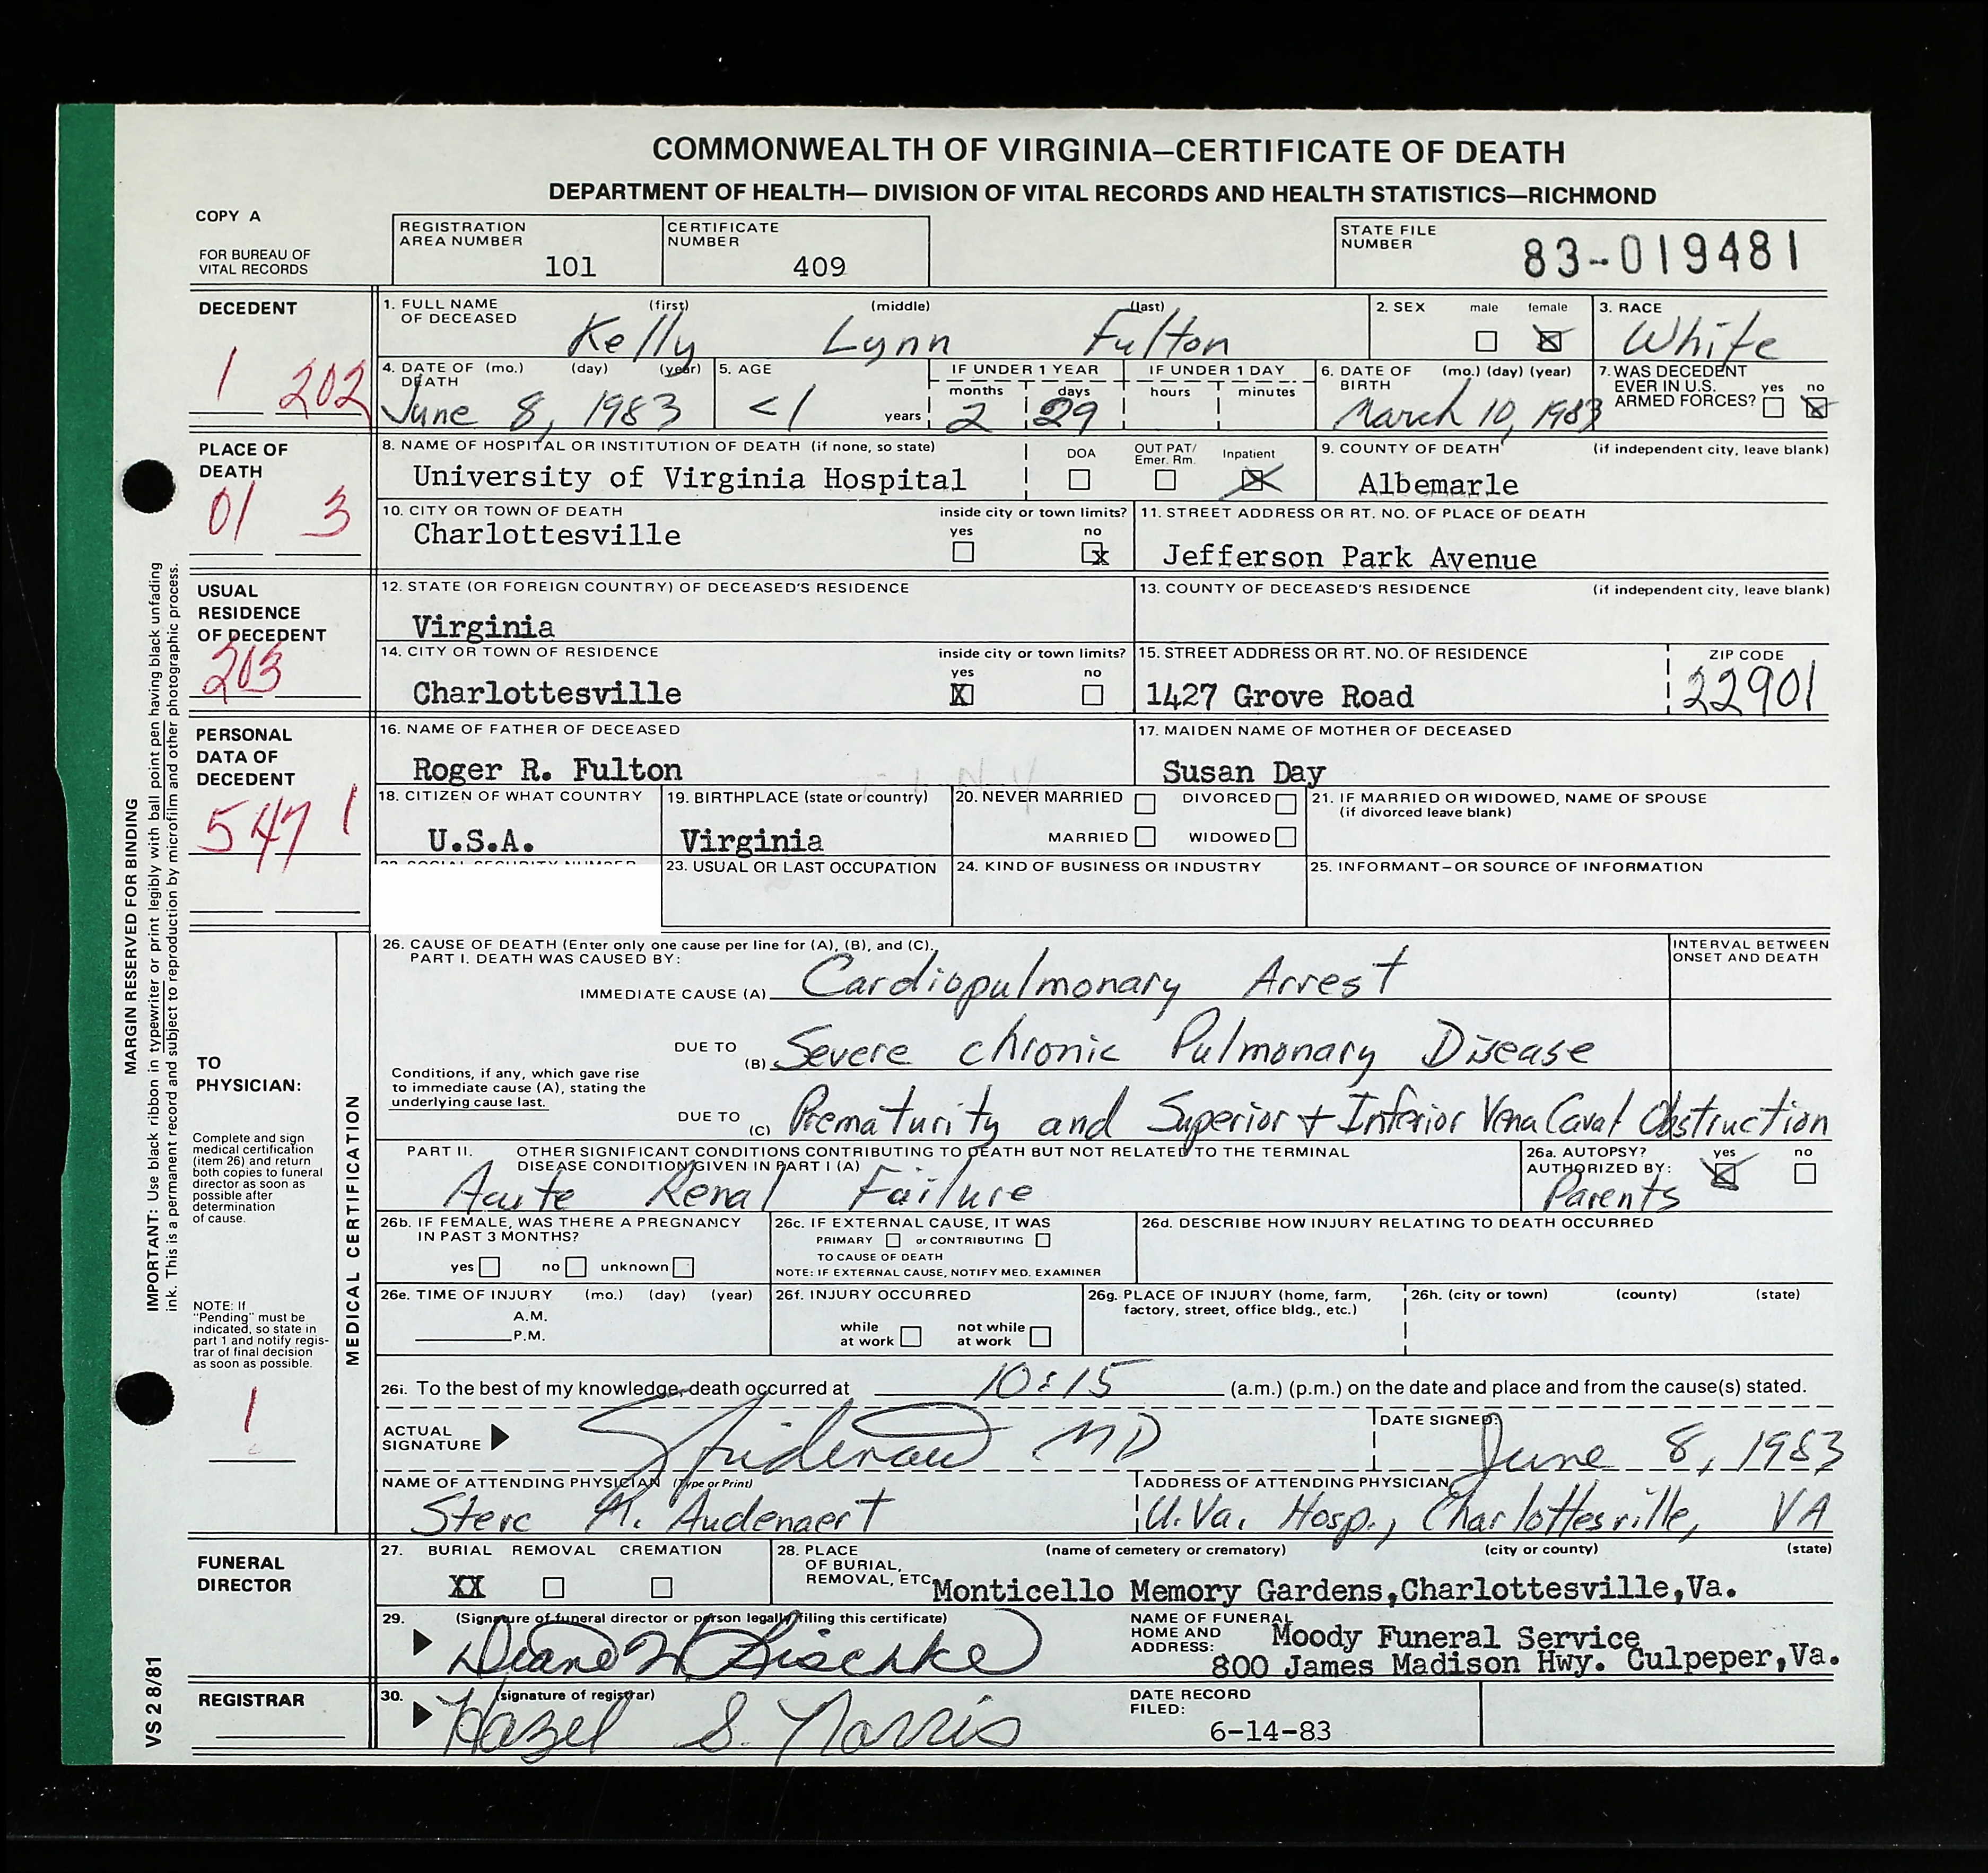 COMMONWEALTH OF VIRGINIA—CERTIFICATE OF DEATH
DEPARTMENT OF HEALTH— DIVISION OF VITAL RECORDS AND HEALTH STATISTICS—RICHMOND
COPY A
FOR BUREAU OF
VITAL RECORDS
REGISTRATION
AREA NUMBER
101
CERTIFICATE
NUMBER
409
STATE FILE
NUMBER
83-019481
DECEDENT
1 202
1. FULL NAME
OF DECEASED
(first) (middle) (last)
Kelly Lynn Fulton
2. SEX male female
3. RACE
White
4. DATE OF (mo.) (day) (year)
DEATH
June 8, 1983
5. AGE
<1 years
IF UNDER 1 YEAR
months days
2 29
IF UNDER 1 DAY
hours minutes
6. DATE OF (mo.) (day) (year)
BIRTH
March 10, 1983
7. WAS DECEDENT
EVER IN U.S. yes no
ARMED FORCES?
PLACE OF
DEATH
01 3
8. NAME OF HOSPITAL OR INSTITUTION OF DEATH (if none, so state)
University of Virginia Hospital
DOA
OUT PAT/
Emer. Rm.
Inpatient
9. COUNTY OF DEATH (if independent city, leave blank)
Albemarle
10. CITY OR TOWN OF DEATH inside city or town limits?
Charlottesville yes no
x
11. STREET ADDRESS OR RT. NO. OF PLACE OF DEATH
Jefferson Park Avenue
USUAL
RESIDENCE
OF DECEDENT
203
12. STATE (OR FOREIGN COUNTRY) OF DECEASED'S RESIDENCE
Virginia
13. COUNTY OF DECEASED'S RESIDENCE (if independent city, leave blank)
14. CITY OR TOWN OF RESIDENCE inside city or town limits?
yes no
Charlottesville X
15. STREET ADDRESS OR RT. NO. OF RESIDENCE
1427 Grove Road
ZIP CODE
22901
PERSONAL
DATA OF
DECEDENT
547 1
16. NAME OF FATHER OF DECEASED
Roger R. Fulton
17. MAIDEN NAME OF MOTHER OF DECEASED
Susan Day
18. CITIZEN OF WHAT COUNTRY
U.S.A.
19. BIRTHPLACE (state or country)
Virginia
20. NEVER MARRIED DIVORCED
MARRIED WIDOWED
21. IF MARRIED OR WIDOWED, NAME OF SPOUSE
(if divorced leave blank)
23. USUAL OR LAST OCCUPATION
24. KIND OF BUSINESS OR INDUSTRY
25. INFORMANT—OR SOURCE OF INFORMATION
MARGIN RESERVED FOR BINDING
IMPORTANT: Use black ribbon in typewriter or print legibly with ball point pen having black unfading
ink. This is a permanent record and subject to reproduction by microfilm and other photographic process.
TO
PHYSICIAN:
Complete and sign
medical certification
(item 26) and return
both copies to funeral
director as soon as
possible after
determination
of cause.
NOTE: If
"Pending" must be
indicated, so state in
part 1 and notify regis-
trar of final decision
as soon as possible.
1
MEDICAL CERTIFICATION
26. CAUSE OF DEATH (Enter only one cause per line for (A), (B), and (C).
PART I. DEATH WAS CAUSED BY:
INTERVAL BETWEEN
ONSET AND DEATH
IMMEDIATE CAUSE (A) Cardiopulmonary Arrest
DUE TO
(B) Severe chronic Pulmonary Disease
Conditions, if any, which gave rise
to immediate cause (A), stating the
underlying cause last.
DUE TO
(C) Prematurity and Superior + Inferior Vena Caval Obstruction
PART II. OTHER SIGNIFICANT CONDITIONS CONTRIBUTING TO DEATH BUT NOT RELATED TO THE TERMINAL
DISEASE CONDITION GIVEN IN PART I (A)
Acute Renal Failure
26a. AUTOPSY? yes no
AUTHORIZED BY:
Parents
26b. IF FEMALE, WAS THERE A PREGNANCY
IN PAST 3 MONTHS?
yes no unknown
26c. IF EXTERNAL CAUSE, IT WAS
PRIMARY or CONTRIBUTING
TO CAUSE OF DEATH
NOTE: IF EXTERNAL CAUSE, NOTIFY MED. EXAMINER
26d. DESCRIBE HOW INJURY RELATING TO DEATH OCCURRED
26e. TIME OF INJURY (mo.) (day) (year)
A.M.
P.M.
26f. INJURY OCCURRED
while
at work
not while
at work
26g. PLACE OF INJURY (home, farm,
factory, street, office bldg., etc.)
26h. (city or town) (county) (state)
26i. To the best of my knowledge, death occurred at 10:15 (a.m.) (p.m.) on the date and place and from the cause(s) stated.
ACTUAL
SIGNATURE
MD
DATE SIGNED:
June 8, 1983
NAME OF ATTENDING PHYSICIAN (Type or Print)
A. Audenaert
ADDRESS OF ATTENDING PHYSICIAN
U. Va. Hosp., Charlottesville, VA
FUNERAL
DIRECTOR
27. BURIAL REMOVAL CREMATION
XX
28. PLACE
OF BURIAL,
REMOVAL, ETC.
(name of cemetery or crematory) (city or county) (state)
Monticello Memory Gardens,Charlottesville,Va.
29. (Signature of funeral director or person legally filing this certificate)
NAME OF FUNERAL
HOME AND
ADDRESS:
Moody Funeral Service
800 James Madison Hwy. Culpeper,Va.
REGISTRAR
30. (signature of registrar)
Hazel S. Norris
DATE RECORD
FILED:
6-14-83
VS 2 8/81